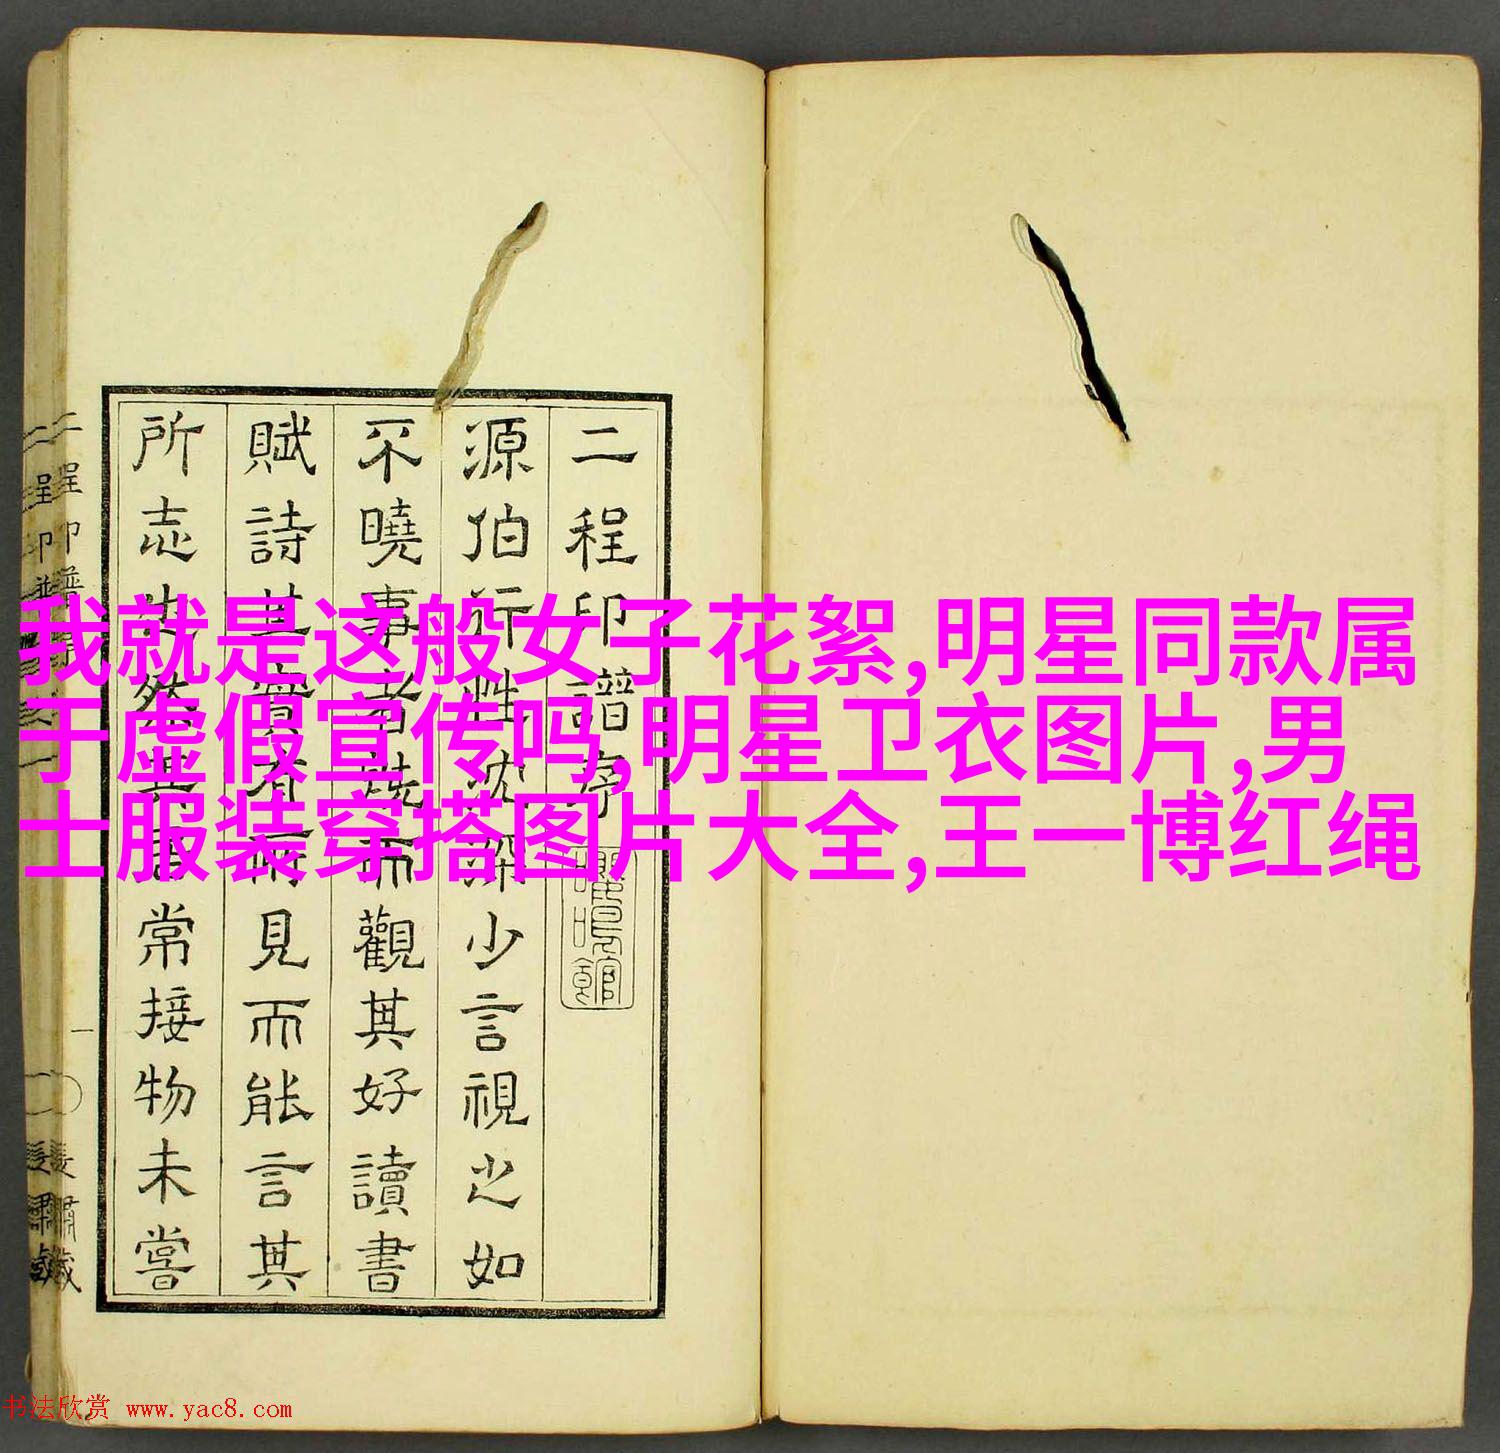 二程印譜序
源伯行性沈深少言視之如
不曉事者然而觀其好讀書
賦詩其實有所見而能言其
所志也然其居常接物未嘗
我就是这般女子花絮,明星同款属
于虚假宣传吗,明星卫衣图片,男
士服装穿搭图片大全,王一博红绳
二程印譜
一
书法欣赏 www.yac8.com